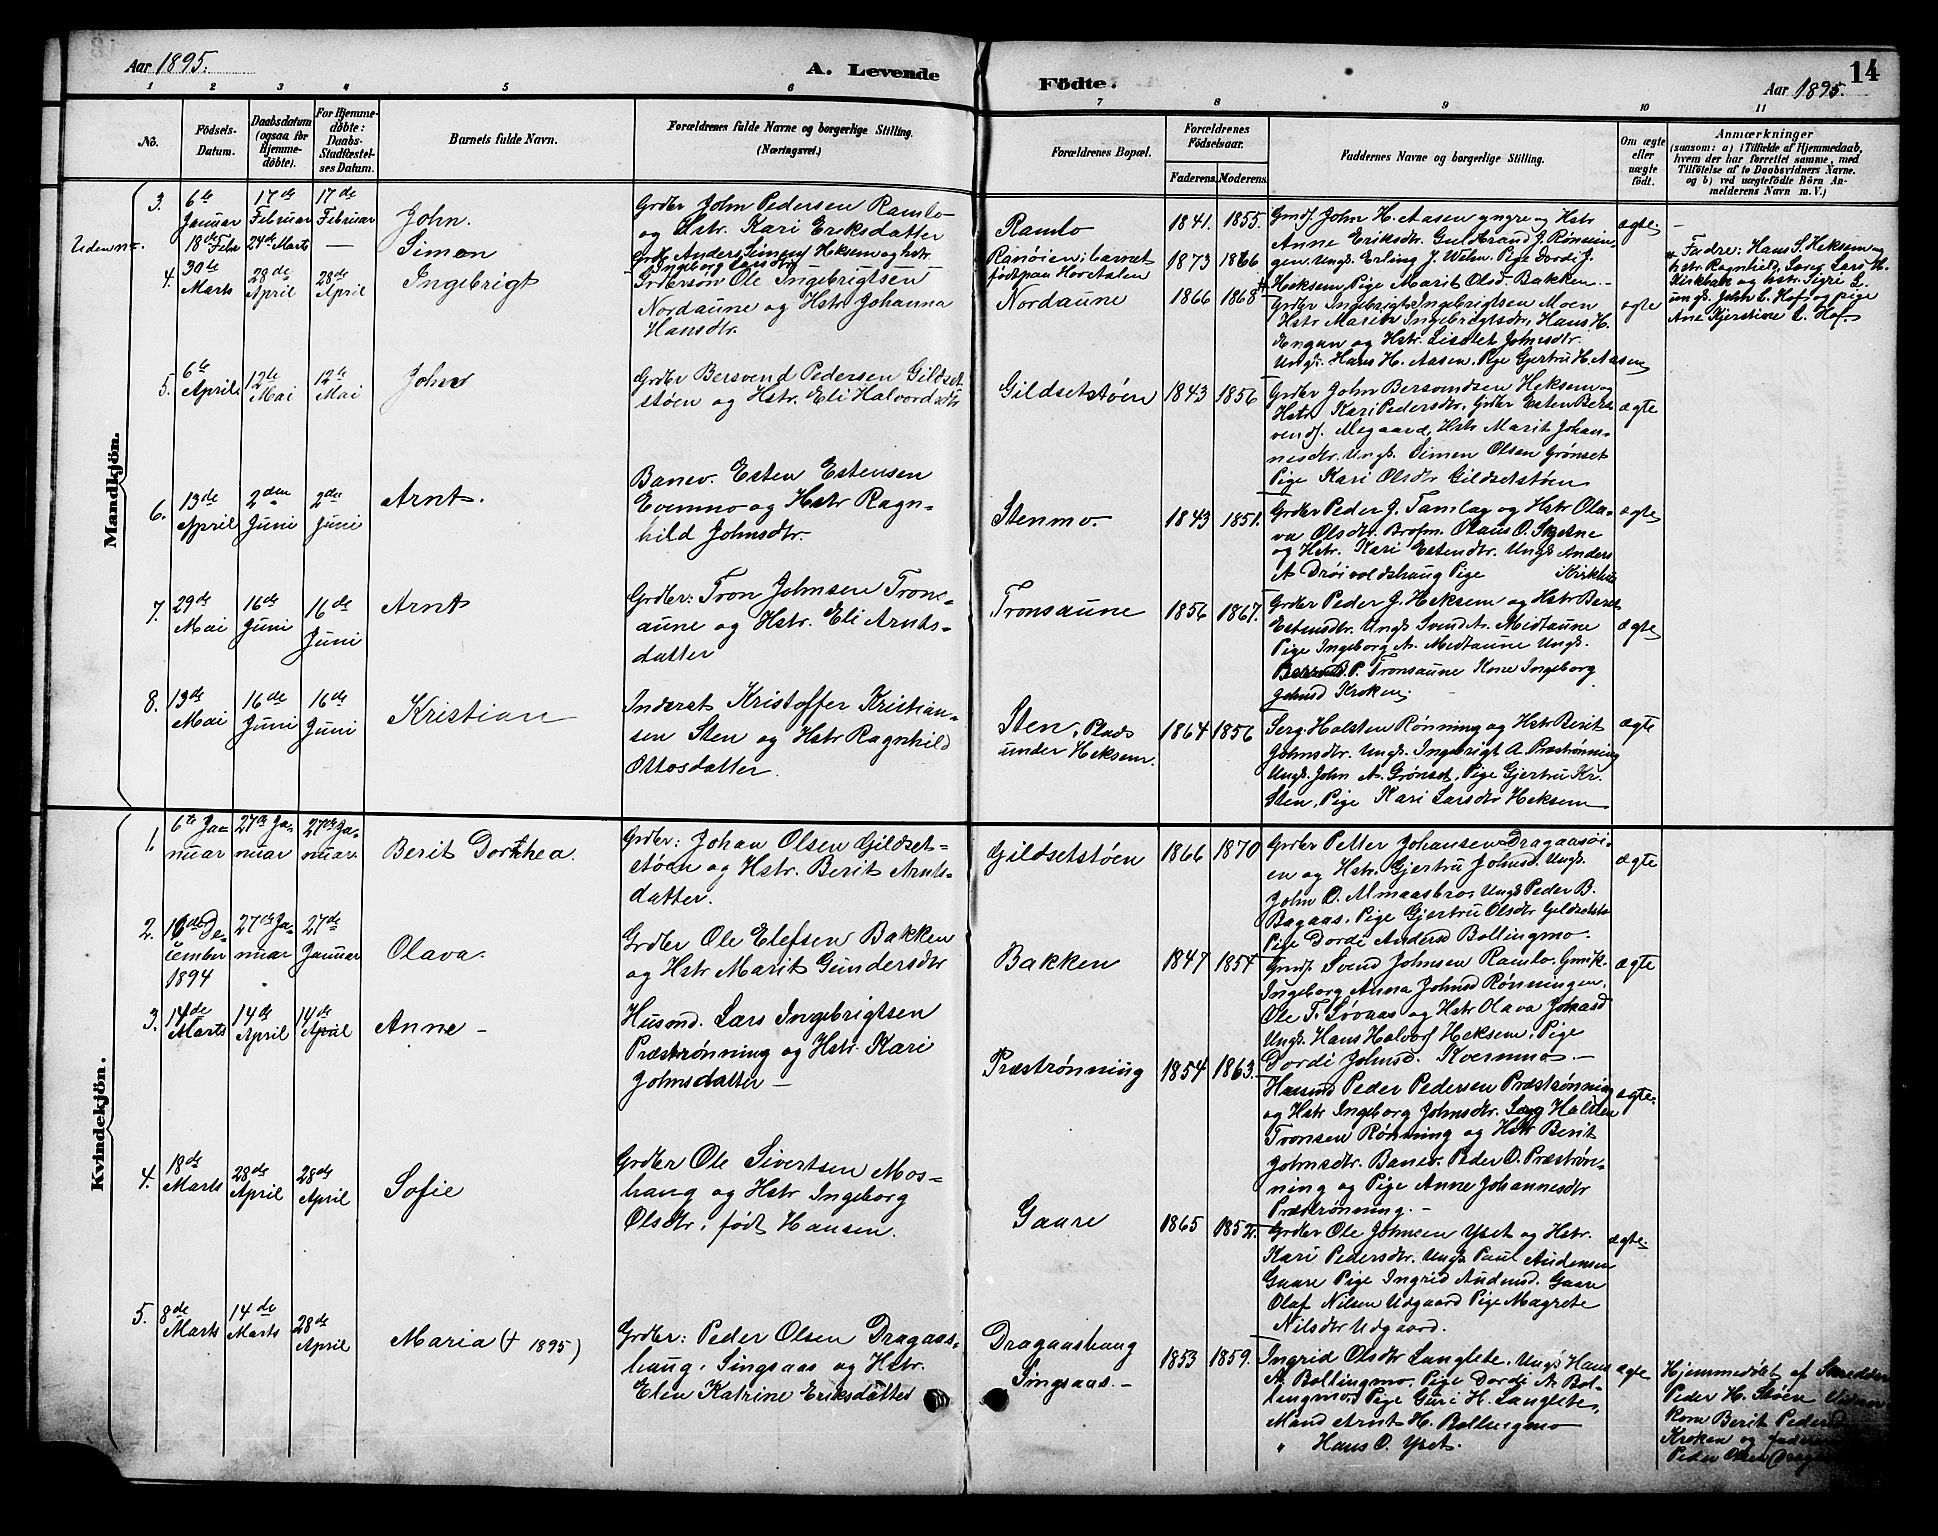 Aar 1895.
A. Levende
Födte.
Aar 1895.
14
1 2 3 4 5 6 7 8 9 10 11
No.
Födsels-
Datum.
Daabsdatum
(ogsaa for
Hjemme-
döbte).
For Hjemme-
döbte:
Daabs-
Stadfæstel-
ses Datum.
Barnets fulde Navn.
Forældrenes fulde Navne og borgerlige Stilling.
(Næringsvei.)
Forældrenes Bopæl.
Forældrenes
Födselsaar.
Faderens. Moderens.
Faddernes Navne og borgerlige Stilling.
Om ægte
eller
uægte
födt.
Anmærkninger
(saasom: a) i Tilfælde af Hjemmedaab,
hvem der har forrettet samme, med
Tilföielse af to Daabsvidners Navne.
og b) ved uægtefödte Börn An-
melderens Navn m. V.)
Mandkjön.
3. 6te Januar
17de Februar
17de Februar
John.
Grdbr John Pedersen Ramlo
og Hstr. Kari Eriksdatter
Ramlo
1841. 1855.
Gmdf. John H. Aasen yngre og Hstr
Anne Eriksdtr.
ægte
Uden nr.
18de Febr 24de Marts —
Simon
Grdbr Anders Simensen Heksem og hstr.
Ingeborg Larsdtr
födt paa
1873 1866
Heksem, Pige Marit Olsd. Bakken.
* Fadre: Hans S. Heksem og
hstr. Ragnhild, Lars H.
Kirkbak og hstr. Sigri L.
ungk. John L. Hof og pige
Ane Kjerstine L. Hof.
4. 30te Marts
28de April
28de April
Ingebrigt
Ole Ingebrigtsen
Nordaune og Hstr Johanna
Hansdtr.
Nordaune
1866 1868
Grdbr Ingebrigt Ingebrigtsen Moen
Hstr Marit Ingebrigtsdtr, Hans H.
Engan og Hstr. Lisbet Johnsdtr.
Ungk. Hans H. Aasen, Pige Gjertru H. Aasen
ægte
5. 6te April
12te Mai
12te Mai
John
Grdbr Bersvend Pedersen Gildset
støen og Hstr. Eli Halvordsdtr
Gildsetstøen
1843 1856
Grdbr John Bersvendsen Heksem og
Hstr. Kari Pedersdtr. Grdbr Esten Bers
vendf. Megaard, Hstr Marit Johan-
nesdtr. Ungk. Simen Olsen Grønset
Pige Kari Olsdtr Gildsetstøen
ægte
6. 13de April
2den Juni
2den Juni
Arnt.
Banev. Esten Estensen
Evenmo og Hstr Ragn-
hild Johnsdtr.
Stenmo.
1843 1851.
Grdbr Peder J. Tamlag og Hstr Ola-
va Olsdtr. Brofm. Olaus O. Skjetne
og Hstr. Kari Estendtr. Ungk. Anders
A Drøivoldshaug Pige Kirkhus
ægte
7. 29de Mai
16de Juni
16de Juni
Arnt
Grdbr: Tron Johnsen Trons-
aune og Hstr. Eli Arnts-
datter
Tronsaune
1856 1867.
Grdbr Peder J. Heksem og Hstr Beret
Estensdtr. Ungk. Svend A. Midtaune
Pige Ingeborg A. Midtaune Ungk.
P. Tronsaune Kone Ingeborg
Johnsd Kroken.
ægte
8. 13de Mai
16de Juni
16de Juni
Kristian
Inderst Kristoffer Kristian-
sen Sten og Hstr Ragnhild
Ottosdatter.
Sten, Plads
under Heksem.
1864 1856
Serg. Halsten Rønning og Hstr Berit
Johnsdtr. Ungk. Ingebrigt A. Præstrønning
Ungk. John A. Grønset, Pige Gjertru Kr.
Sten, Pige Kari Larsdtr Heksem
ægte
Kvindekjön.
1. 6te Januar
27de Januar
27de Januar.
Berit Dorthea.
Grdbr: Johan Olsen Gildset-
støen og Hstr. Berit Arnts-
datter.
Gildsetstøen
1866 1870
Grdbr Petter Johansen Dragaasøi-
en og Hstr. Gjertru Johnsd. Ungk.
John O. Almaasbro, Ungk Peder B.
Bagaas, Pige Gjertru Olsdtr Gildsetstø
Pige Dordi Andersd Bollingmo.
ægte
2. 16de De-
cember
1894
27de Januar
27de Januar
Olava.
Grdbr Ole Elefsen Bakken
og Hstr Marit Gundersdtr
Bakken
1847 1854
Gmdf. Svend Johnsen Ramlo. Gmfk.
Ingeborg Anna Johnsd Rønningen.
Ole T. Løvaas og Hstr Olava Johnsd
Ungk. Hans Halvorf Heksem. Pige
Dordi Johnsd. Kvernmo. —
ægte
3. 14de Marts
14de April
14de April
Anne —
Husmd. Lars Ingebrigtsen
Præstrønning og Hstr. Kari
Johnsdatter —
Præstrønning
1854 1863.
Husmd Peder Pedersen Præstrønning
og Hstr Ingeborg Johnsdtr. Serg Halsten
Tronsen Rønning og Hstr Berit
Johnsdtr. Banev. Peder O. Præstrøn-
ning og Pige Anne Johannesdtr
Præstrønning. —
ægte.
4. 18de Marts
28de April
28de April
Sofie
Grdbr Ole Sivertsen Mos-
haug og Hstr Ingeborg
Olsdtr, født Hansen.
Gaare
1865 1852.
Grdbr Ole Johnsen Yset og Hstr.
Kari Pedersdtr. Ungk. Paul Audensen
Gaare Pige Ingrid Audensd. Gaare
Olaf Nilsen Udgaard Pige Magrete
Nilsdtr Udgaard.
ægte.
5. 8de Marts
14de Marts
28de April
Maria († 1895)
Grdbr: Peder Olsen Dragaas-
haug, Singsaas og Hstr.
Elen Katrine Eriksdatter
Dragaashaug
Singsaas. —
1853 1859.
Ingrid Olsdtr Langlete, Ungk Hans
A. Bollingmo, Pige Dordi A. Bol-
lingmo, Pige Guri H. Langlete,
Mand Arnt H. Bollingmo
" Hans O. Yset.
ægte
Hjemmedøbt af
Peder H. Støen
Kone Berit Pedersd
Kroken og faderen
Peder Olsen